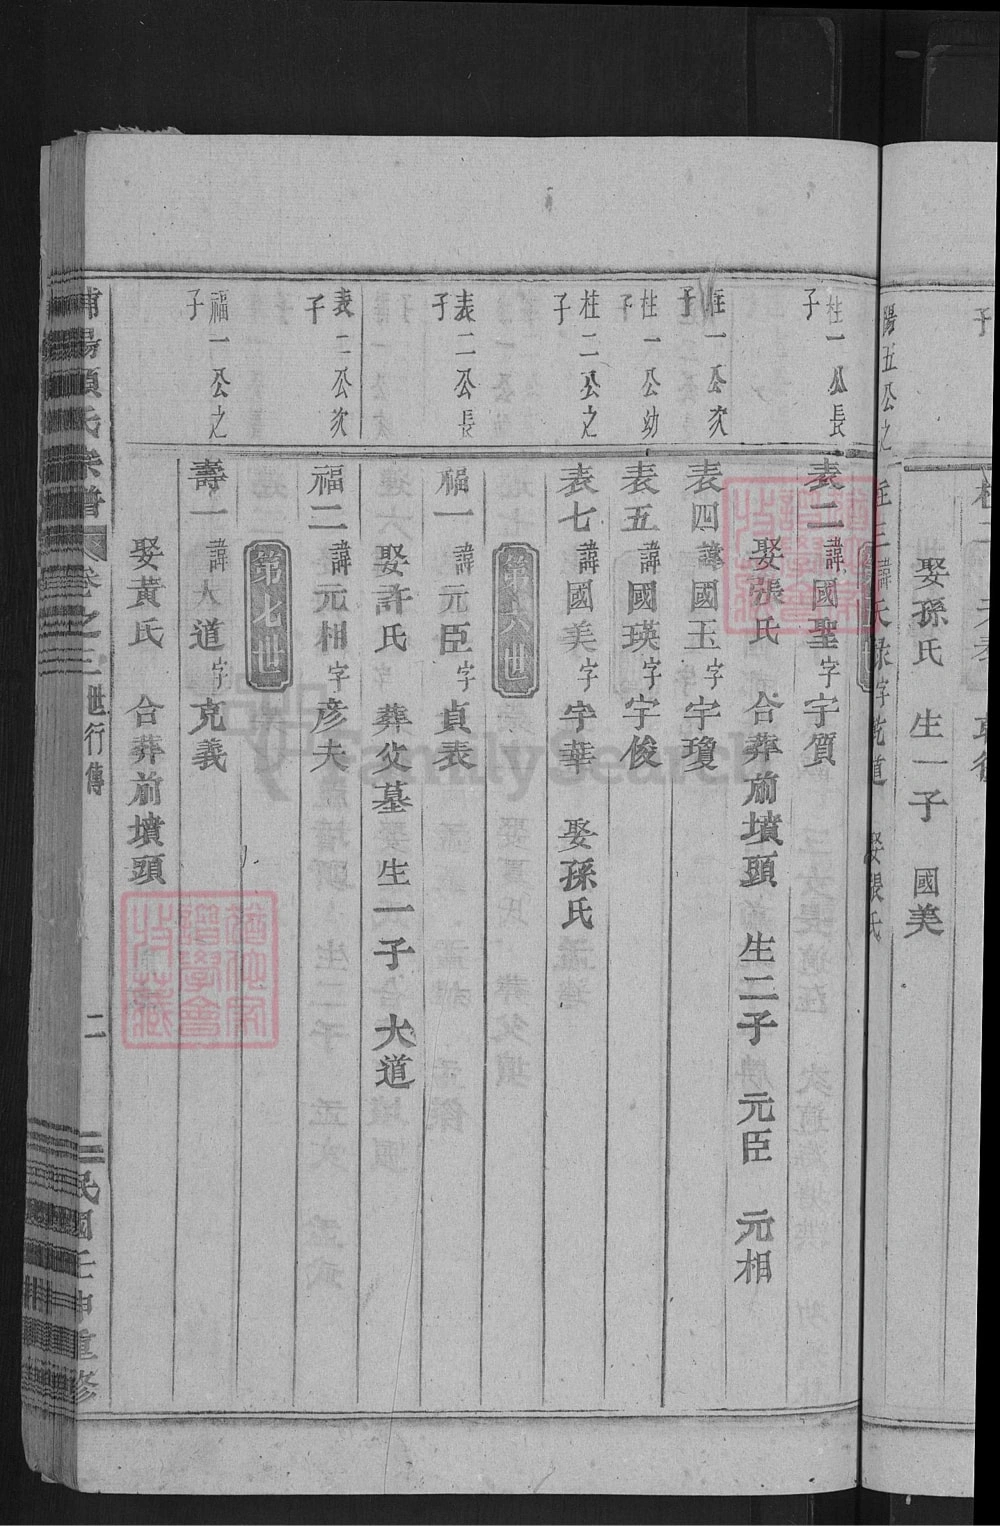 子
娶孫氏 生一子 國美
陽五公之
娶張氏
柱一公長子
表二諱國聖字宇質
娶張氏 合葬前墳頭 生二子 元臣 元相
柱一公次子
表四諱國玉字宇瓊
柱一公幼子
表五諱國瑛字宇俊
柱二公之子
表七諱國美字宇華 娶孫氏
第六世
表二公長子
福一諱元臣字貞表
娶許氏 葬父墓 生一子 大道
表二公次子
福二諱元相字彦夫
第七世
福一公之子
壽一諱大道字克義
娶黃氏 合葬前墳頭
浦陽 氏宗譜 卷之三 世行傳 二 民國壬申重修
FamilySearch